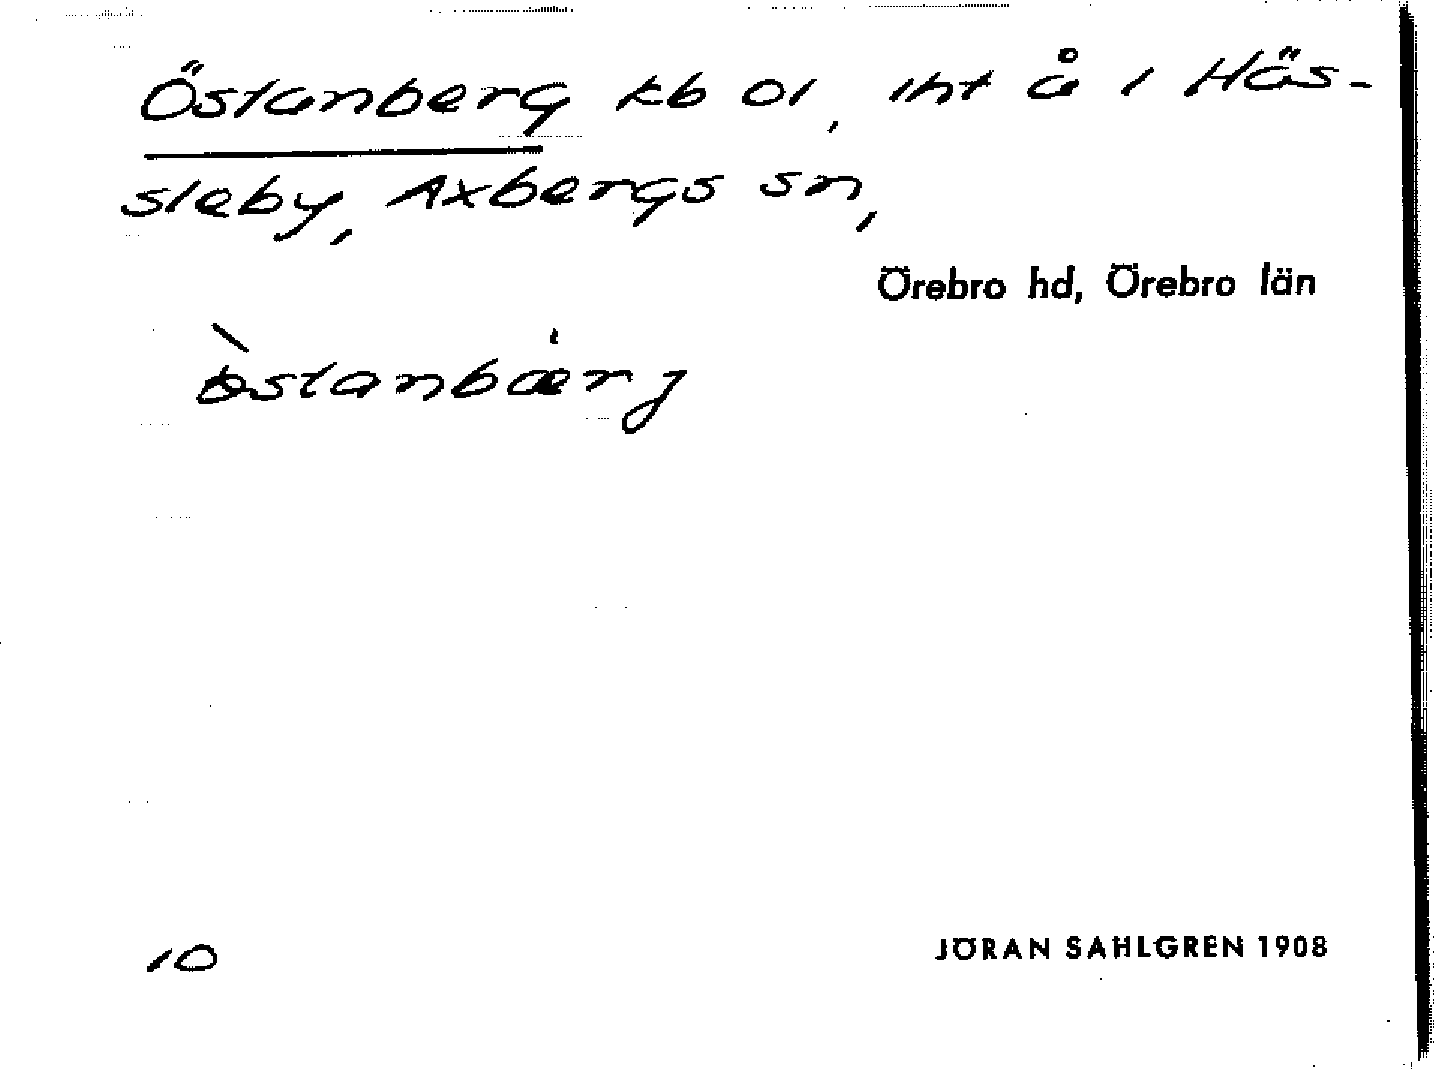 Östanberg kb ol, iht å i Häs-
sleby, Axbergs sn,
Örebro hd, Örebro län
östanbærj
10
JÖRAN SAHLGREN 1908